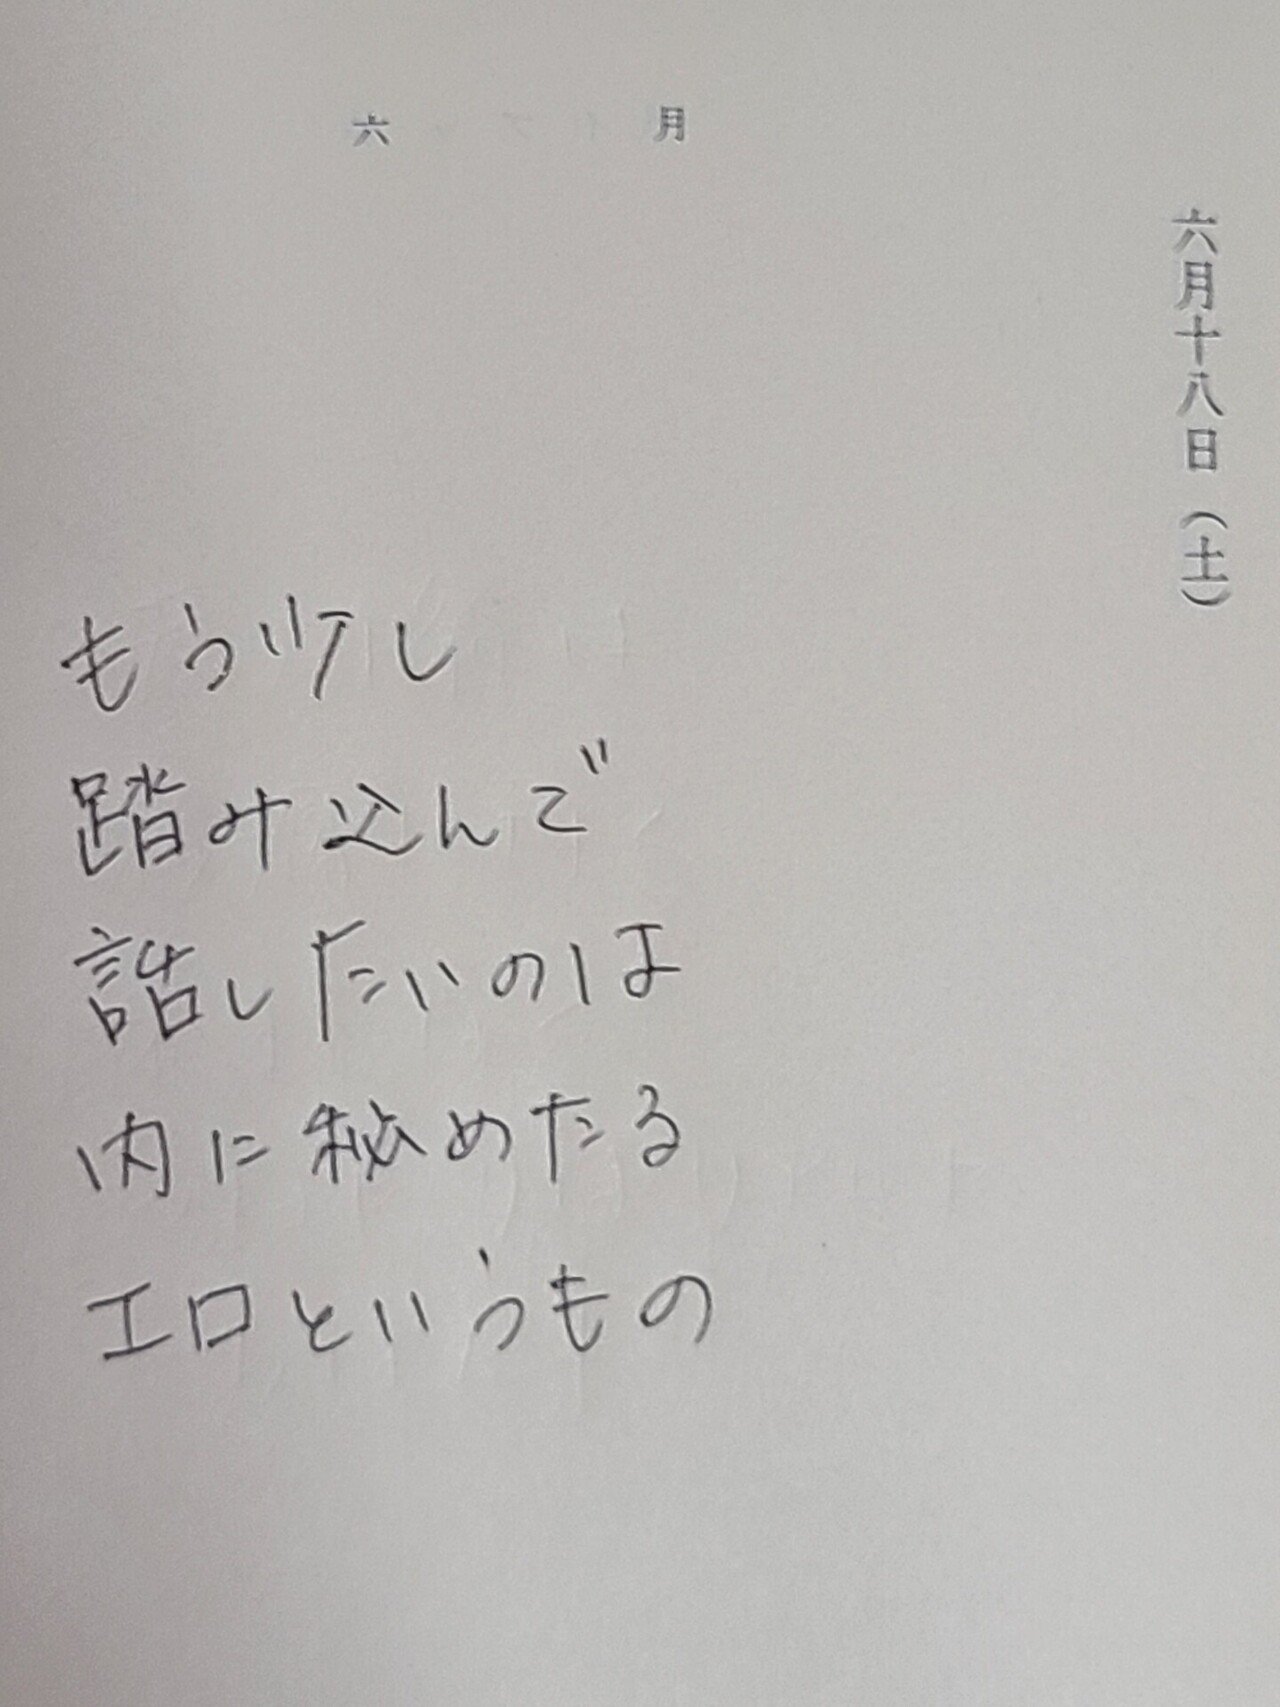 六月
六月十八日（土）
もう少し
踏み込んで
話したいのは
内に秘めたる
エロというもの